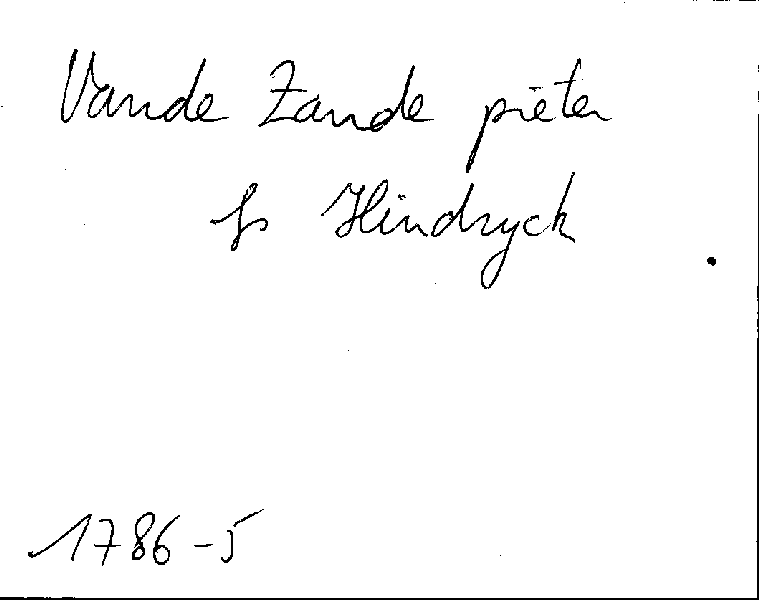 Vande Zande pieter
fs Hindryck
1786-5